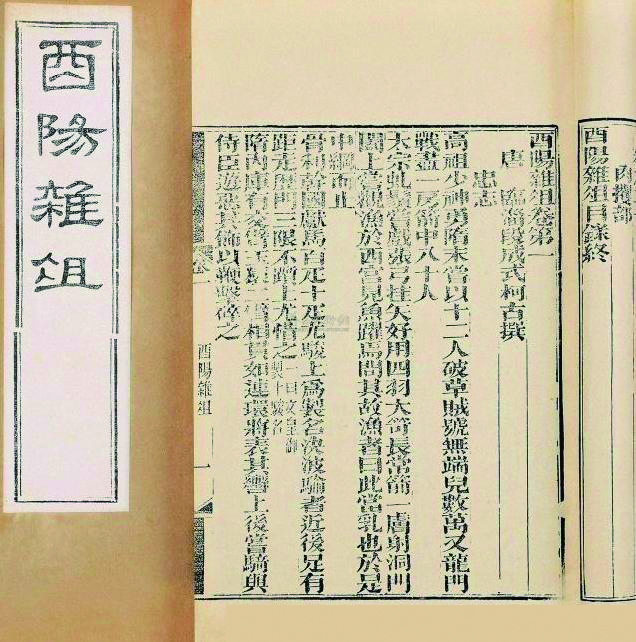 酉陽雜俎
肉攫部
酉陽雜俎目錄終
酉陽雜俎卷第一
唐 臨淄段成式柯古撰
忠志
高祖少神勇隋末嘗以十二人破草賊號無端兒數萬又龍門
戰盡一房箭中八十人
太宗虬鬚嘗戲張弓挂矢好用四羽大笴長常箭一膚射洞門
闔上嘗觀漁於西宮見魚躍焉問其故漁者曰此當乳也於是
中網而止
骨利幹國獻馬百疋十疋尤駿上為製名決波騟者近後足有
距走歷門三限不躓上尤惜之一曰文皇御製十驥名
隋內庫有交臂玉猿二臂相貫如連環將表其轡上後嘗騎與
侍臣遊惡其飾以鞭擊碎之
卷一
酉陽雜俎
一